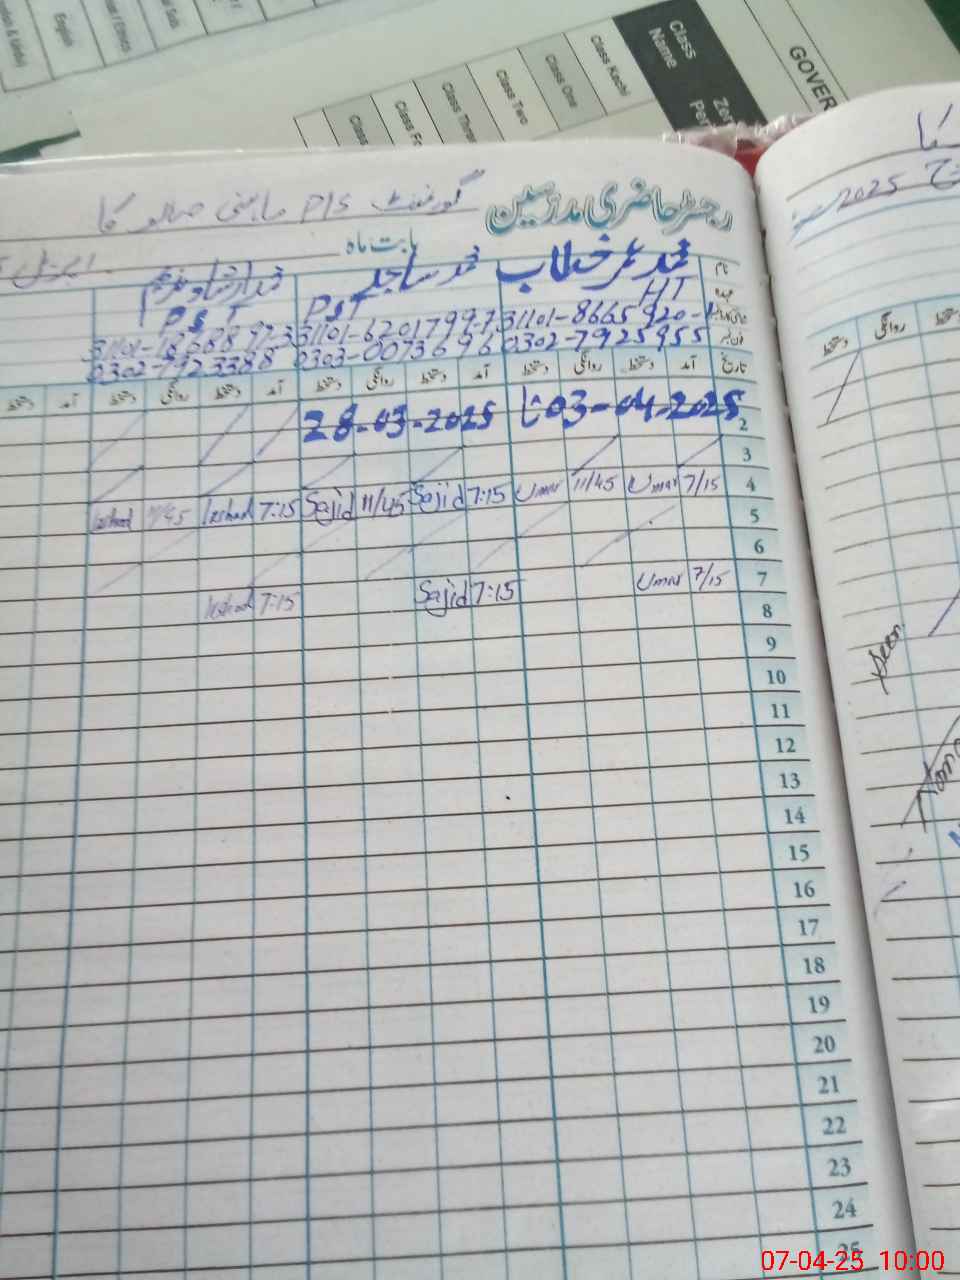 GOVER
Class Name
Class Kachi
Class One
Class Two
Class Three
Class
English
رجسٹر حاضری مدرسین
گورنمنٹ P/S
بابت ماہ اپریل
نام محمد عمر خطاب محمد ساجد
HT PST PST
31101-8665920-1 31101-6201799-7
0302-7925955 0303-0073696 0302-7923388
تاریخ آمد دستخط روانگی دستخط آمد دستخط روانگی دستخط آمد دستخط روانگی دستخط آمد دستخط
28-03-2025 تا 03-04-2025
2
3
4 7/15 Umar 11/45 Umar 7:15 Sajid 11/45 Sajid 7:15 Irshad 11/45 Irshad
5
6
7 7/15 Umar 7:15 Sajid 7:15 Irshad
8
9
10
11
12
13
14
15
16
17
18
19
20
21
22
23
24
25
2025
روانگی دستخط
Seen
07-04-25 10:00